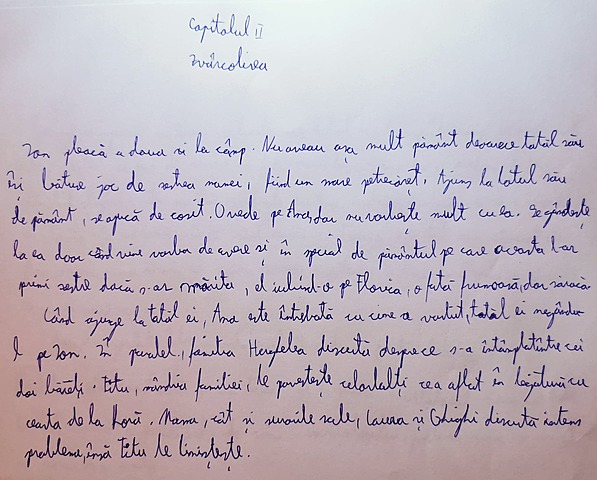 Capitolul II
Zvârcolirea
Ion pleacă a doua zi la câmp. Nu aveau așa mult pământ deoarece tatăl său
își bătuse joc de zestrea mamei, fiind un mare petrecăreț. Ajuns la lotul său
de pământ, se apucă de cosit. O vede pe Ana, dar nu vorbește mult cu ea. Se gândește
la ea doar când vine vorba de avere și în special de pământul pe care aceasta l-ar
primi zestre dacă s-ar mărita, el iubind-o pe Florica, o fată frumoasă, dar săracă
Când ajunge la tatăl ei, Ana este întrebată cu cine a vorbit, tatăl ei negându-
l pe Ion. În paralel, familia Herdelea discută despre ce s-a întâmplat între cei
doi băieți. Titu, mândria familiei, le povestește celorlalți ce a aflat în legătură cu
cearta de la horă. Mama, cât și surorile sale, Laura și Ghighi discută intens
problema, însă Titu le liniștește.